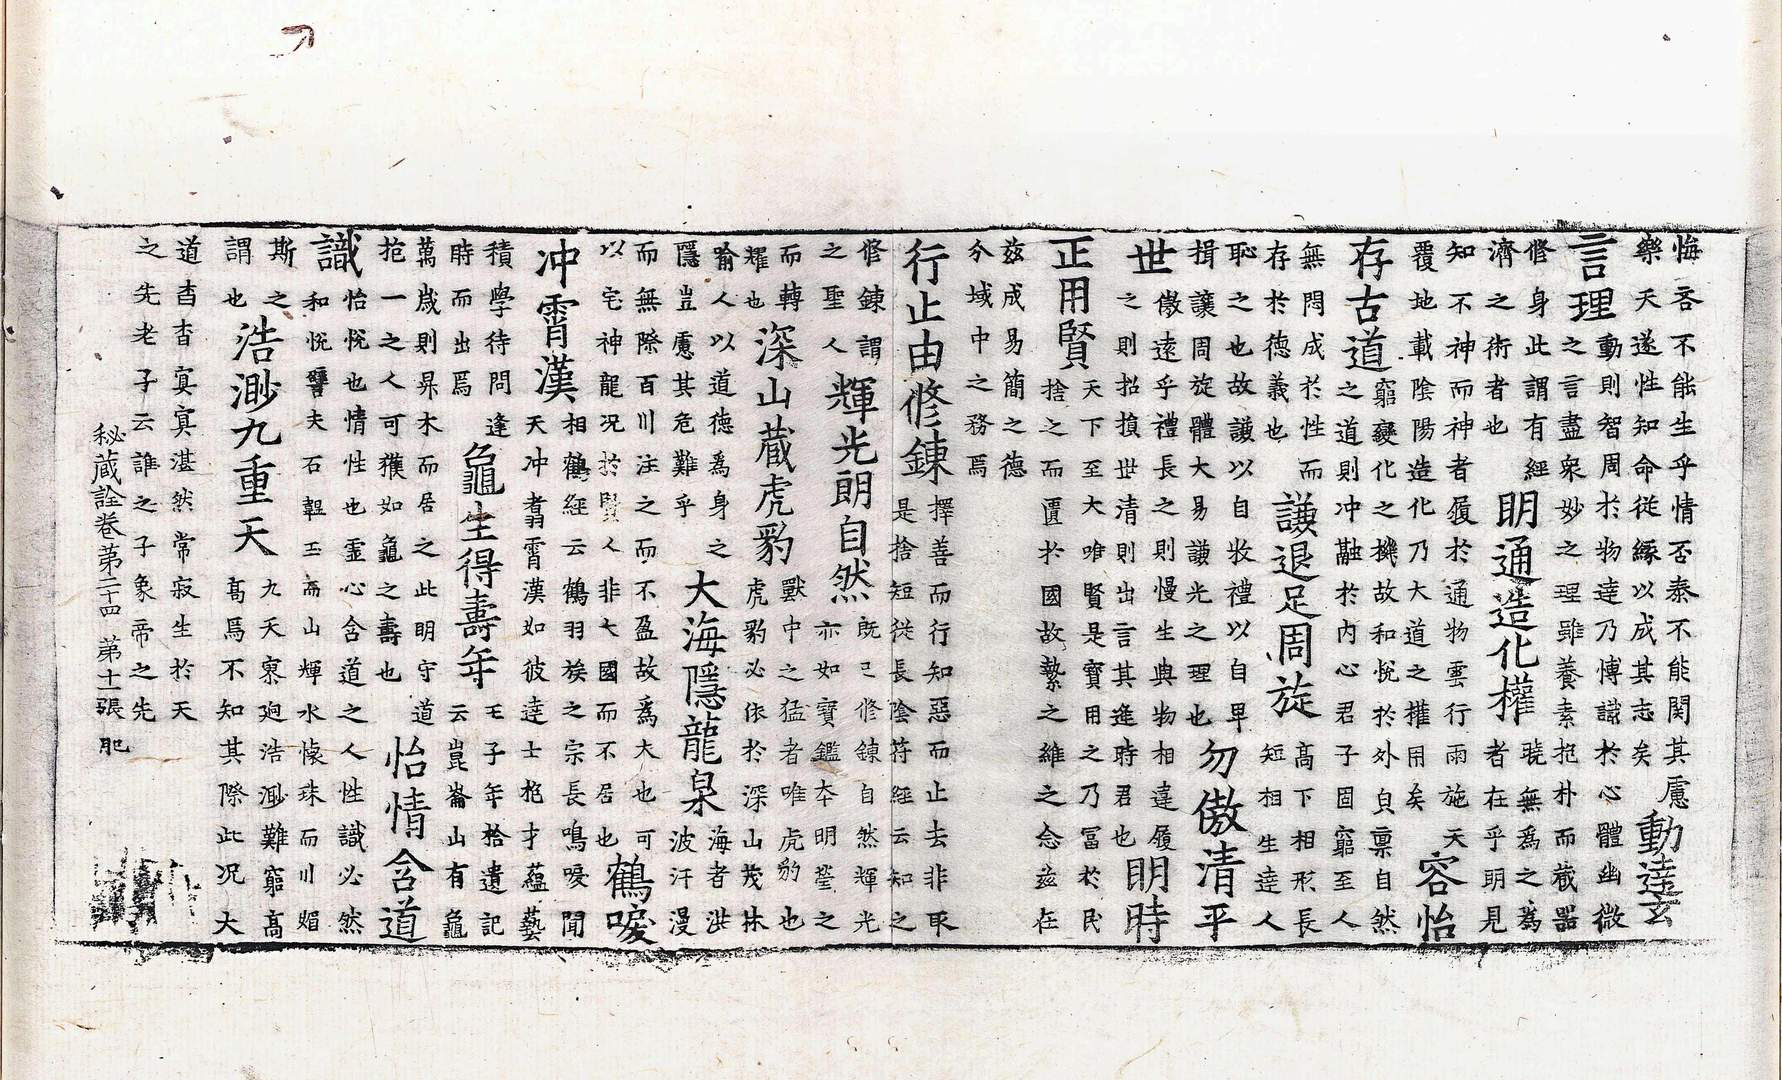 悔吝不能生乎情否泰不能関其慮
樂天遂性知命從緣以成其志矣
動達玄
言理
動則智周於物達乃博識於心體幽微
之言盡衆妙之理雖養素抱朴而蔵器
修身此謂有經
濟之術者也
明通造化權
曉無為之為
者在乎明見
知不神而神者履於通物雲行雨施天
覆地載陰陽造化乃大道之權用矣
容怡
存古道
窮變化之機故和悅於外貞稟自然
之道則冲融於內心君子固窮至人
無悶成於性而
存於德義也
謙退足周旋
高下相形長
短相生達人
恥之也故謙以自牧禮以自卑
揖讓周旋體大易謙光之理也
勿傲清平
世
傲遠乎禮長之則慢生與物相違履
之則招損世清則出言其逄時君也
明時
正用賢
天下至大唯賢是寶用之乃冨於民
捨之而匱於國故縶之維之念茲在
茲成易簡之德
今域中之務焉
行止由修鍊
擇善而行知惡而止去非取
是捨短從長陰符經云知之
修鍊謂
之聖人
輝光朗自然
既已修鍊自然輝光
亦如寶鑑本明瑩之
而轉
耀也
深山蔵虎豹
獸中之猛者唯虎豹也
虎豹必依於深山茂林
喻人以道德為身之
隱豈慮其危難乎
大海隱龍泉
海者洪
波汗漫
而無際百川注之而不盈故為大也可
以宅神龍况於賢人非大國而不居也
鶴唳
冲霄漢
相鶴經云鶴羽族之宗長鳴唳聞
天冲翥霄漢如彼達士抱才蘊藝
積學待問逢
時而出焉
龜生得壽年
王子年拾遺記
云崑崙山有龜
萬歲則昇木而居之此明守道
抱一之人可獲如龜之壽也
怡情含道
識
怡悅也情性也靈心含道之人性識必然
和悅譬夫石韞玉而山輝水懷珠而川媚
斯之
謂也
浩渺九重天
九天寥迥浩渺難窮高
高焉不知其際此况大
道杳杳冥冥湛然常寂生於天
之先老子云誰之子象帝之先
秘蔵詮卷第二十四 第十一張 肥